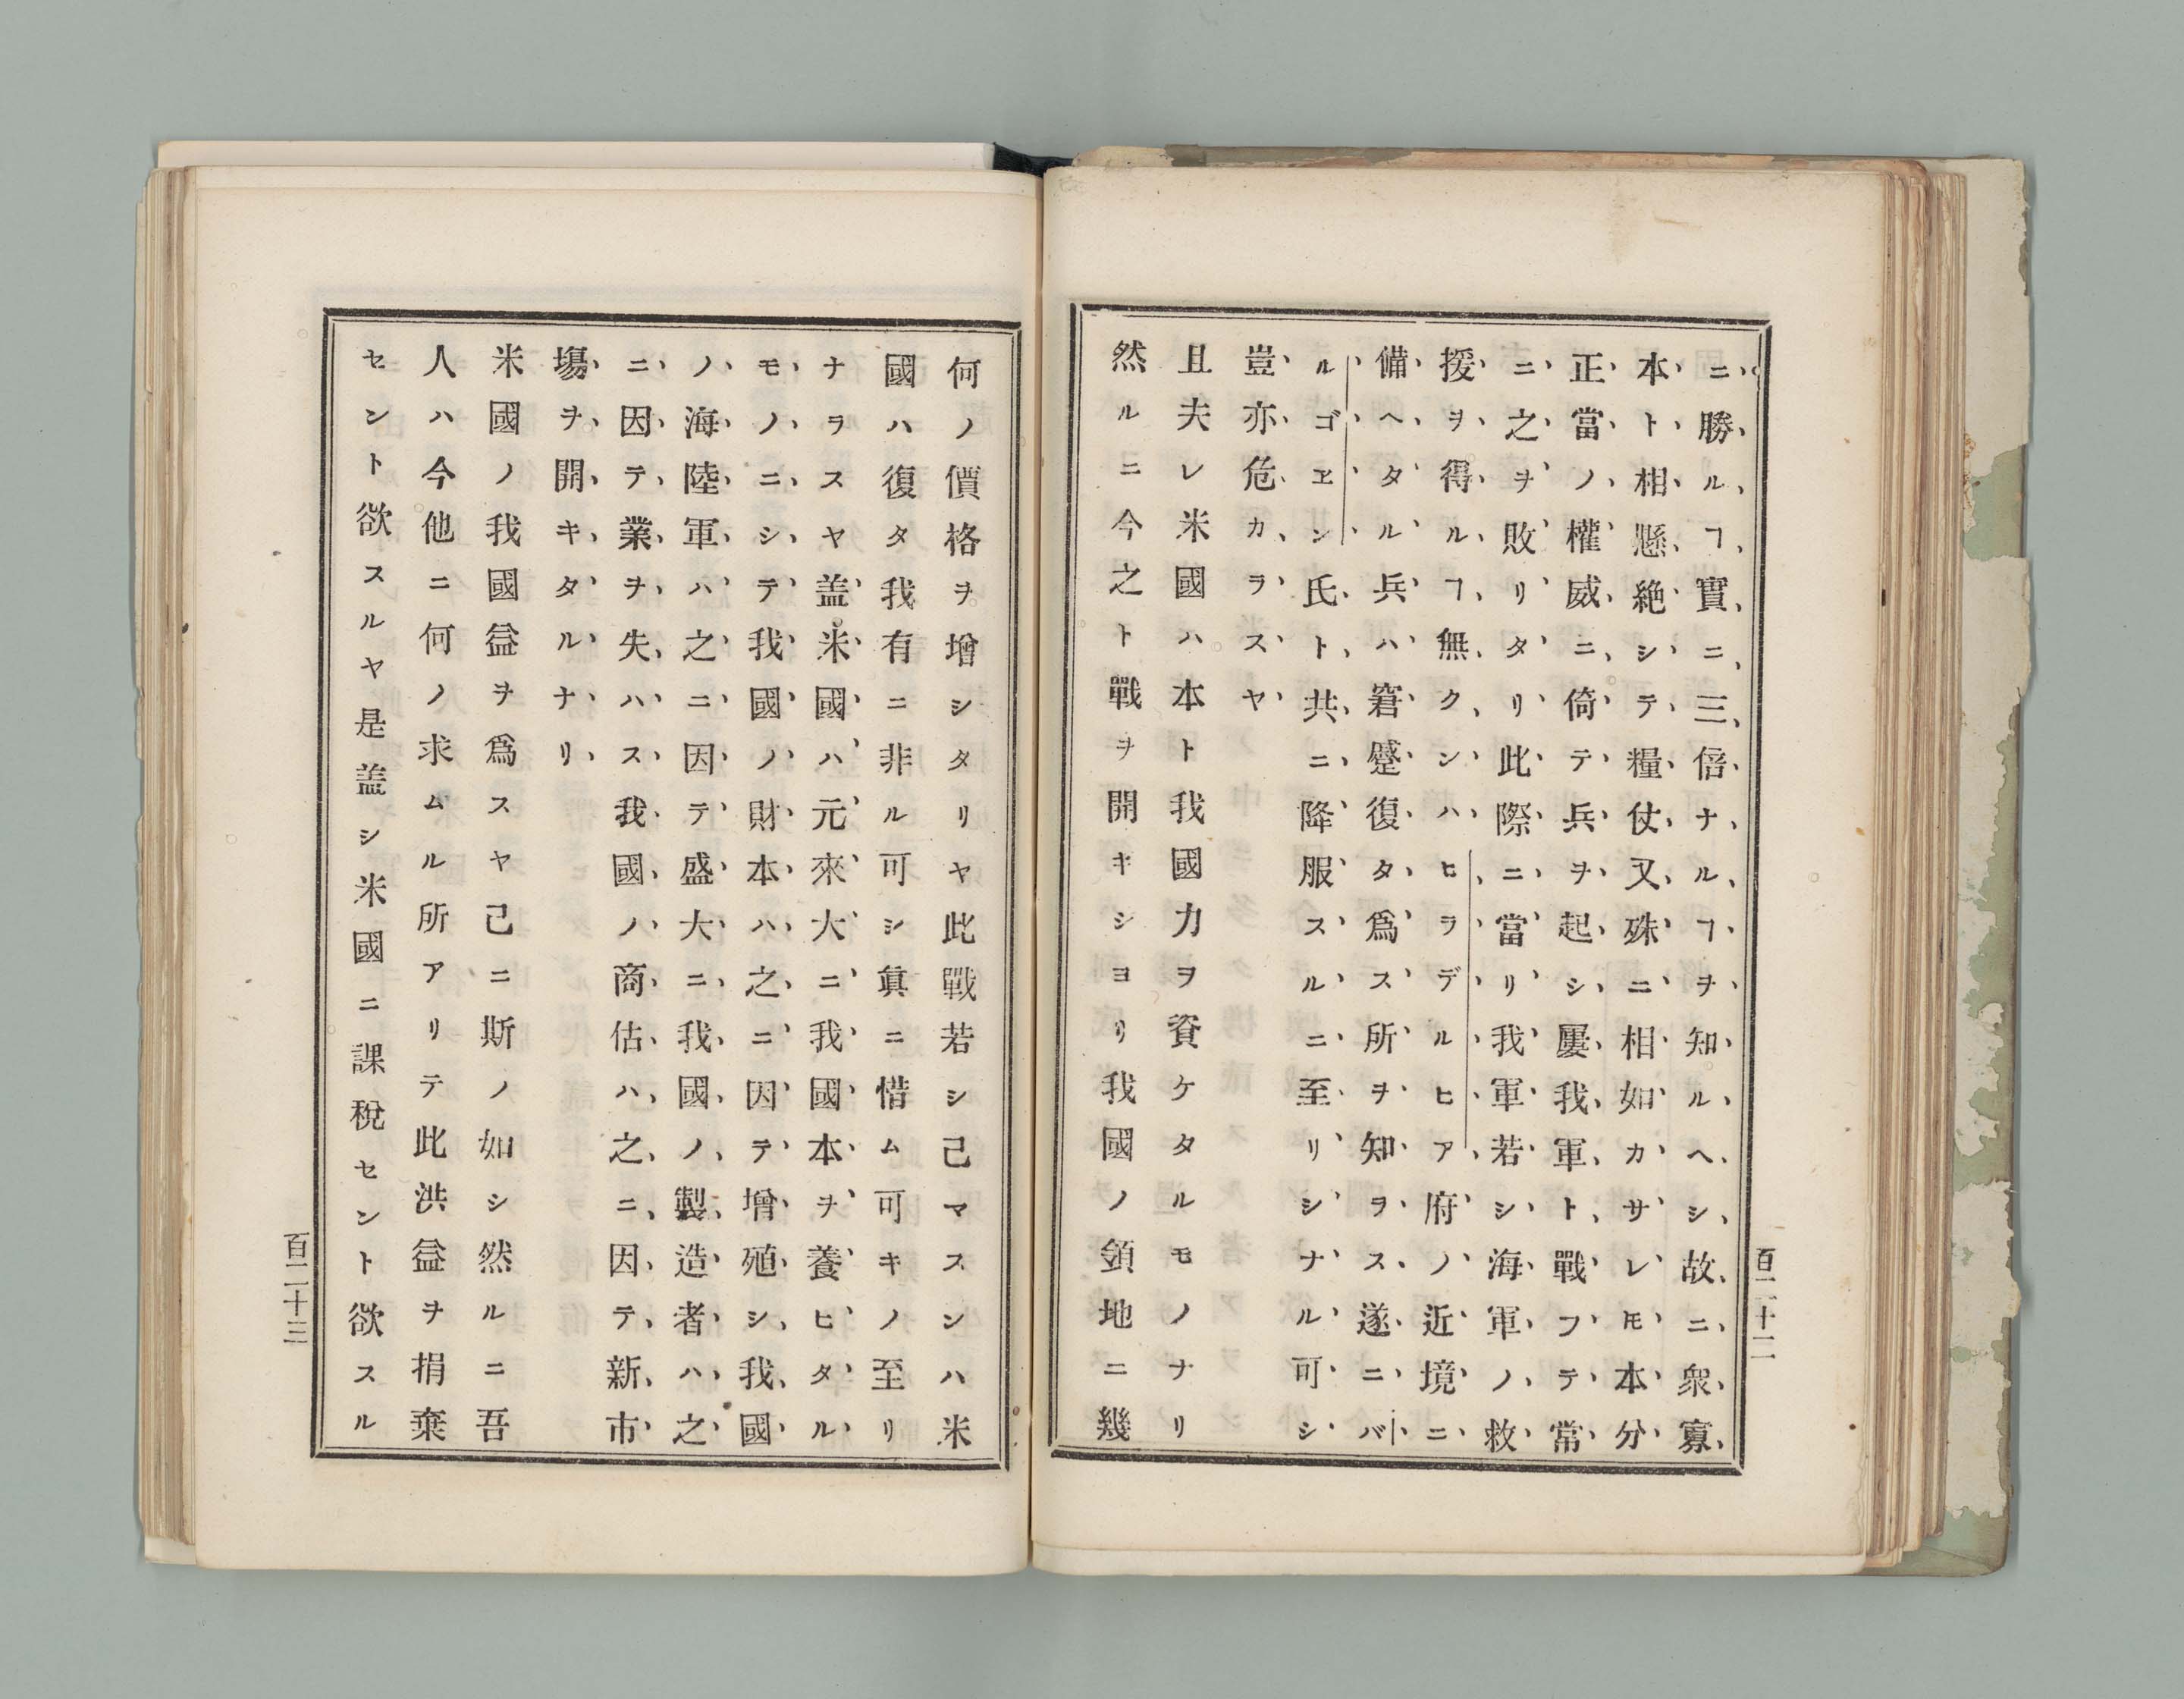 ニ勝ルヿ實ニ三倍ナルヿヲ知ルヘシ故ニ衆寡
本ト相懸絶シテ糧仗又殊ニ相如カサレ𪜈本分
正當ノ權威ニ倚テ兵ヲ起シ屢我軍ト戰フテ常
ニ之ヲ敗リタリ此際ニ當リ我軍若シ海軍ノ救
援ヲ得ルヿ無クンハヒラデルヒア府ノ近境ニ
備ヘタル兵ハ窘蹙復タ爲ス所ヲ知ラス遂ニバ
ルゴヱン氏ト共ニ降服スルニ至リシナル可シ
豈亦危カラスヤ
且夫レ米國ハ本ト我國力ヲ資ケタルモノナリ
然ルニ今之ト戰ヲ開キシヨリ我國ノ領地ニ幾
百二十二
何ノ價格ヲ增シタリヤ此戰若シ己マスンハ米
國ハ復タ我有ニ非ル可シ眞ニ惜ム可キノ至リ
ナラスヤ盖米國ハ元來大ニ我國本ヲ養ヒタル
モノニシテ我國ノ財本ハ之ニ因テ增殖シ我國
ノ海陸軍ハ之ニ因テ盛大ニ我國ノ製造者ハ之
ニ因テ業ヲ失ハス我國ノ商估ハ之ニ因テ新市
塲ヲ開キタルナリ
米國ノ我國益ヲ爲スヤ己ニ斯ノ如シ然ルニ吾
人ハ今他ニ何ノ求ムル所アリテ此洪益ヲ捐棄
セント欲スルヤ是盖シ米國ニ課稅セント欲スル
百二十三